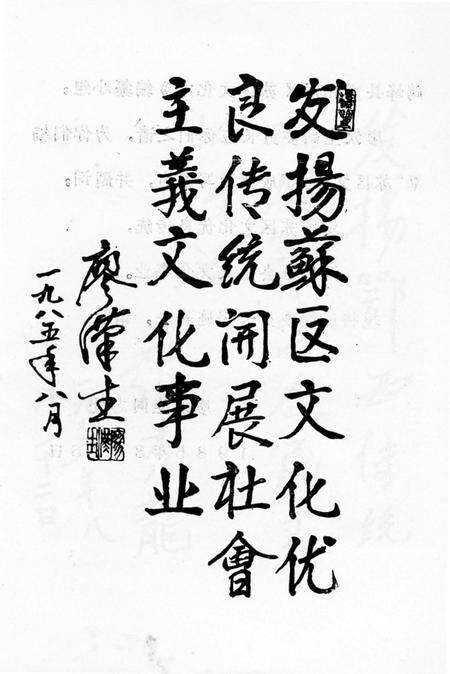 发揚蘇区文化优
良传统开展社會
主義文化事业
廖漢生
一九八五年八月